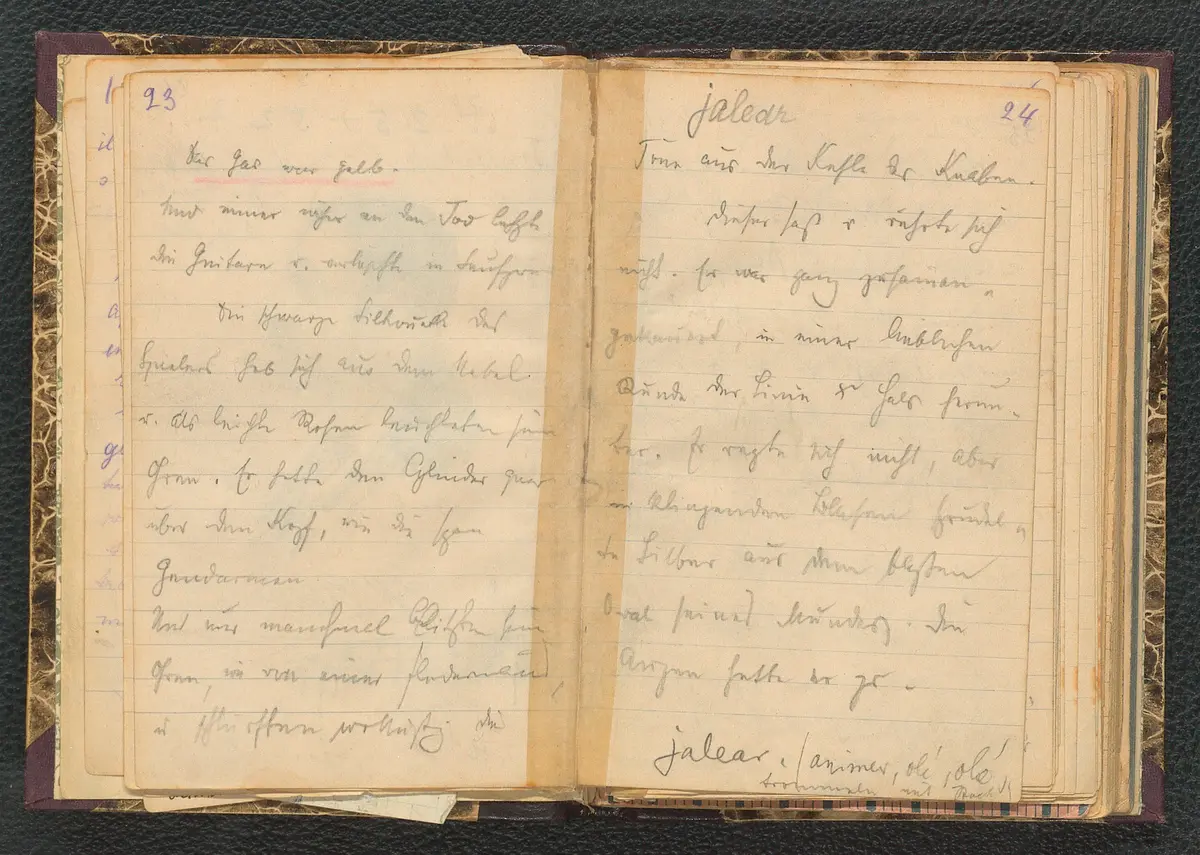 23
Das Gas war gelb.
Und immer näher an den Tod lechzte
die Guitare u. verlöschte in Seufzern
Die schwarze Silhouette des
Spielers hob sich aus dem Nebel.
u. als leichte Rosen leuchteten seine
Ohren. Er hatte den Cylinder quer
über dem Kopf, wie die span
Gendarmen
Und nur manchmal blitzten seine
Ohren, wie von einer Fledermaus,
u schlürften wollüstig die
jaleaz
24
Töne aus der Kehle des Knaben.
Dieser saß u rührte sich
nicht. Er war ganz zusammen-
gekauert, in einer lieblichen
Runde der Linie zr Hals herun-
ter. Er regte sich nicht, aber
in klingenden Blasen sprudel-
te Silber aus dem blassen
Oval seines Mundes. Die
Augen hatte er zu.
jalear. (animer, olé, olé
trommeln mit